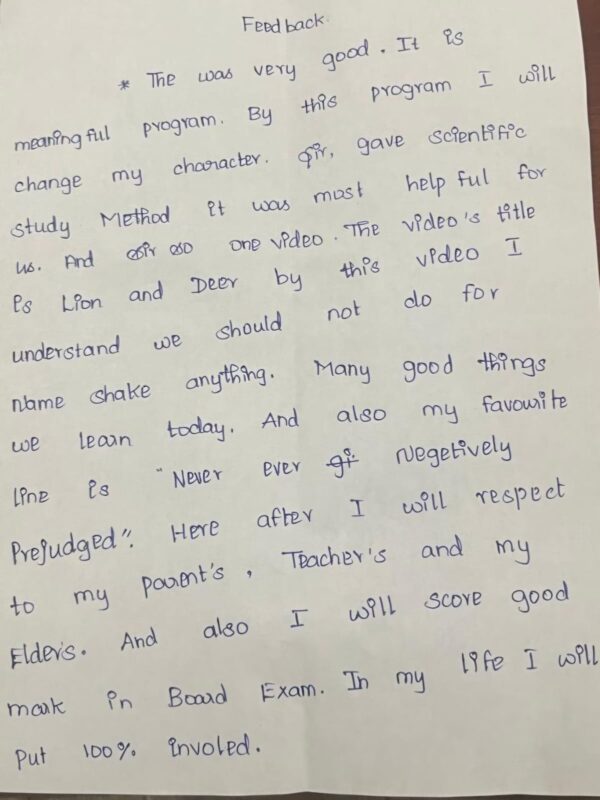 Feedback
* The was very good. It is
meaningful program. By this program I will
change my character. Sir, gave scientific
study Method it was most helpful for
us. And one video. The video's title
is Lion and Deer by this video I
understand we should not do for
name shake anything. Many good things
we learn today. And also my favourite
line is "Never ever Negetively
Prejudged". Here after I will respect
to my parent's, Teacher's and my
Elder's. And also I will score good
mark in Board Exam. In my life I will
Put 100% involed.